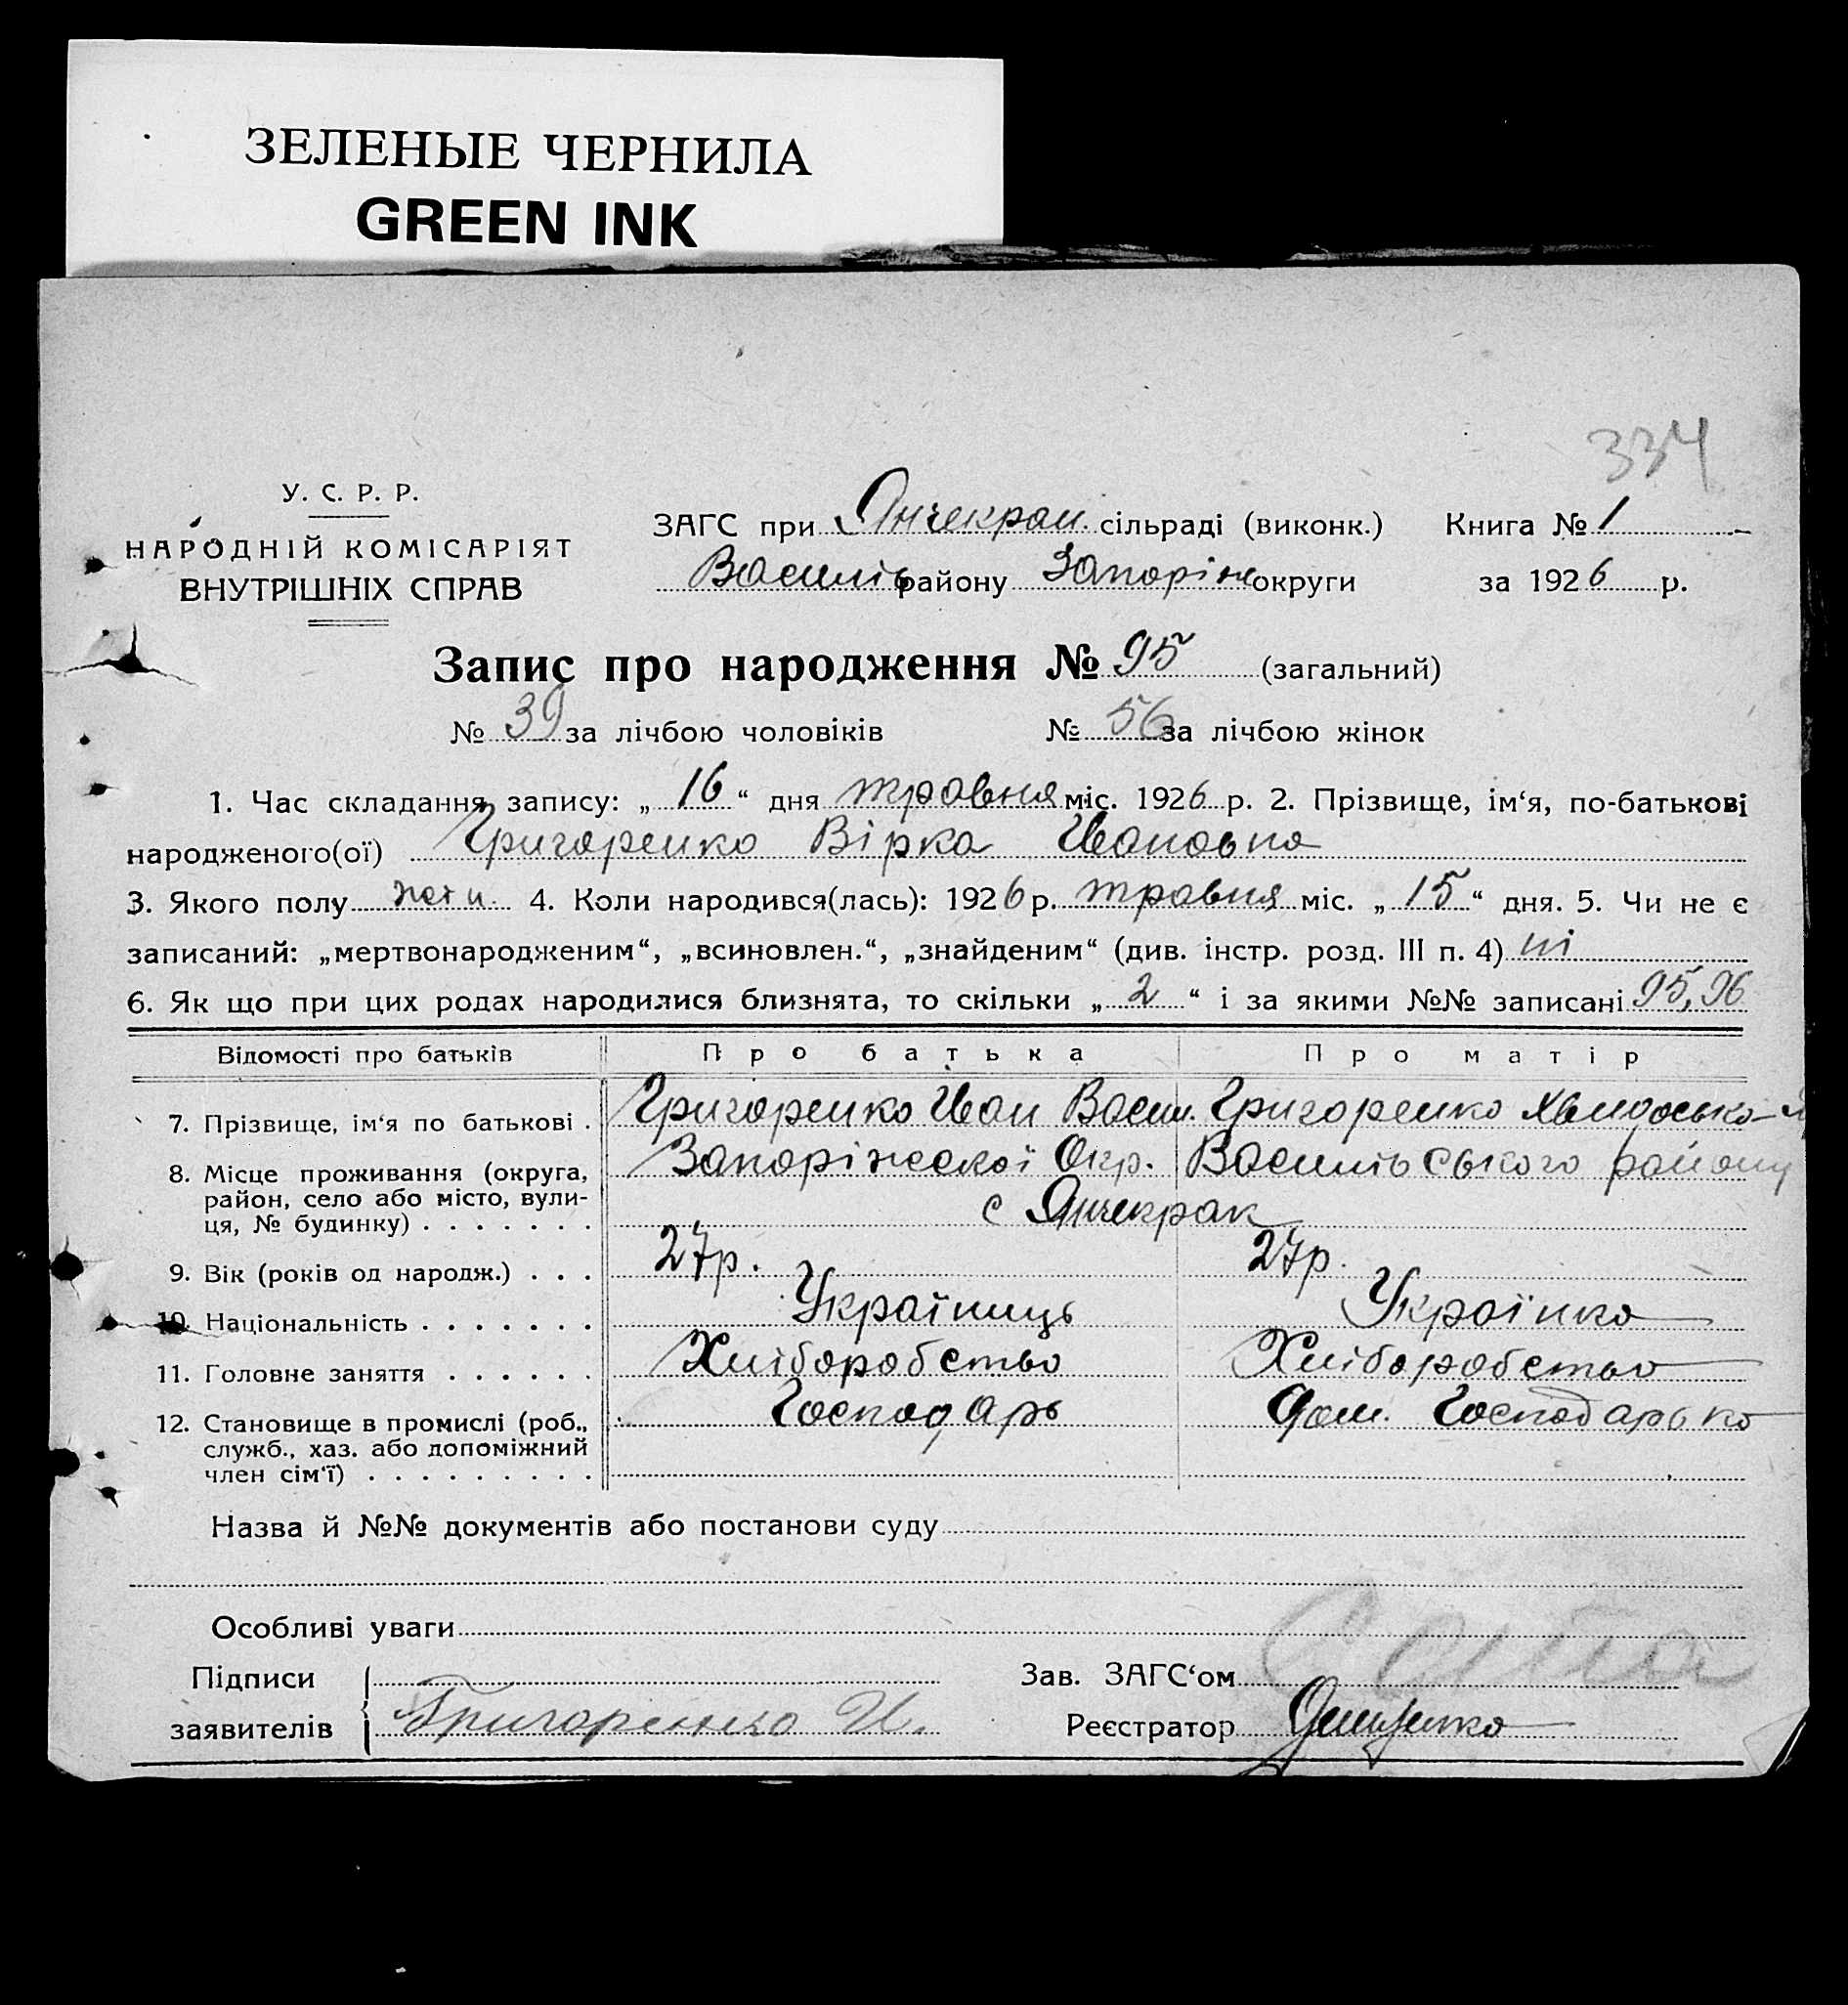 ЗЕЛЕНЫЕ ЧЕРНИЛА
GREEN INK
334
У. С. Р. Р.
НАРОДНІЙ КОМІСАРІЯТ
ВНУТРІШНІХ СПРАВ
ЗАГС при Янчекрак. сільраді (виконк.) Книга № 1
Василів району Запоріж округи за 1926 р.
Запис про народження № 95 (загальний)
№ 39 за лічбою чоловіків № 56 за лічбою жінок
1. Час складання запису: „ 16 “ дня травня міс. 1926 р. 2. Прізвище, ім‘я, по-батькові
народженого(ої) Григоренко Вірка Івановна
3. Якого полу жоти. 4. Коли народився(лась): 1926 р. травня міс. „ 15 “ дня. 5. Чи не є
записаний: „мертвонародженим“, „всиновлен.“, „знайденим“ (див. інстр. розд. III п. 4) ні
6. Як що при цих родах народилися близнята, то скільки „ 2 “ і за якими №№ записані 95, 96
Відомості про батьків Про батька Про матір
7. Прізвище, ім‘я по батькові . Григоренко Иван Васил. Григоренко
8. Місце проживання (округа, Запоріжської Окр. Василівського району
район, село або місто, вули-
ця, № будинку) . . . . . . . с Янчекрак
9. Вік (років од народж.) . . . 27р. 27р.
10. Національність . . . . . . . Україниць Українка
11. Головне заняття . . . . . . Хліборобство Хліборобство
12. Становище в промислі (роб., Господарь Дом. Господарька
служб., хаз. або допоміжний
член сім‘ї) . . . . . . . . .
Назва й №№ документів або постанови суду
Особливі уваги
Підписи Зав. ЗАГС‘ом
заявителів Григоренко И. Реєстратор